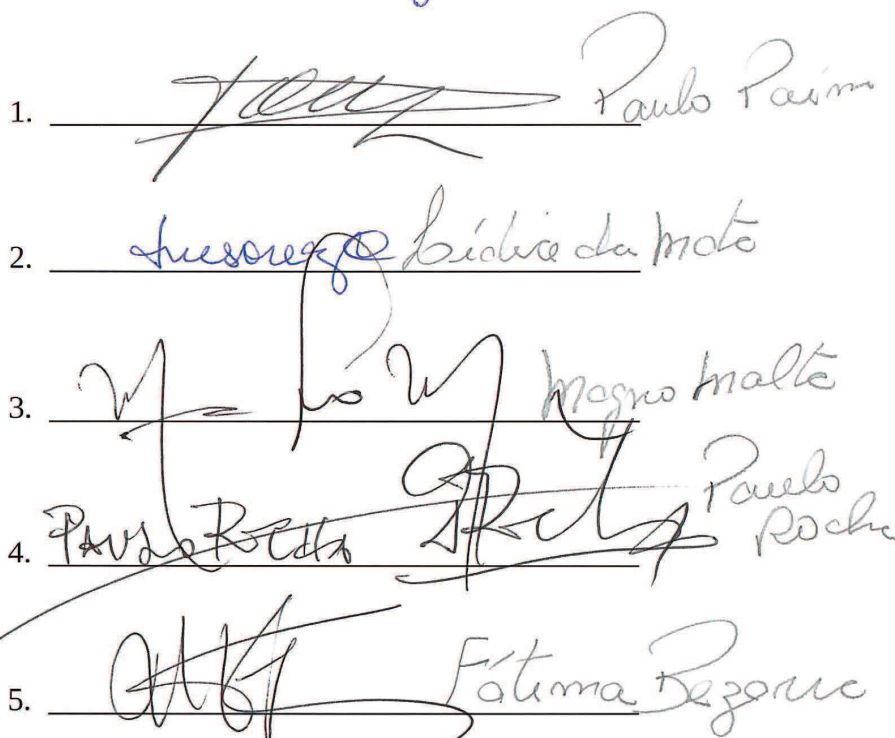 1. Paulo Paim
2. Lídice da Mata
3. Magno Malta
4. PAULO ROCHA Paulo
Rocha
5. Fátima Bezerra